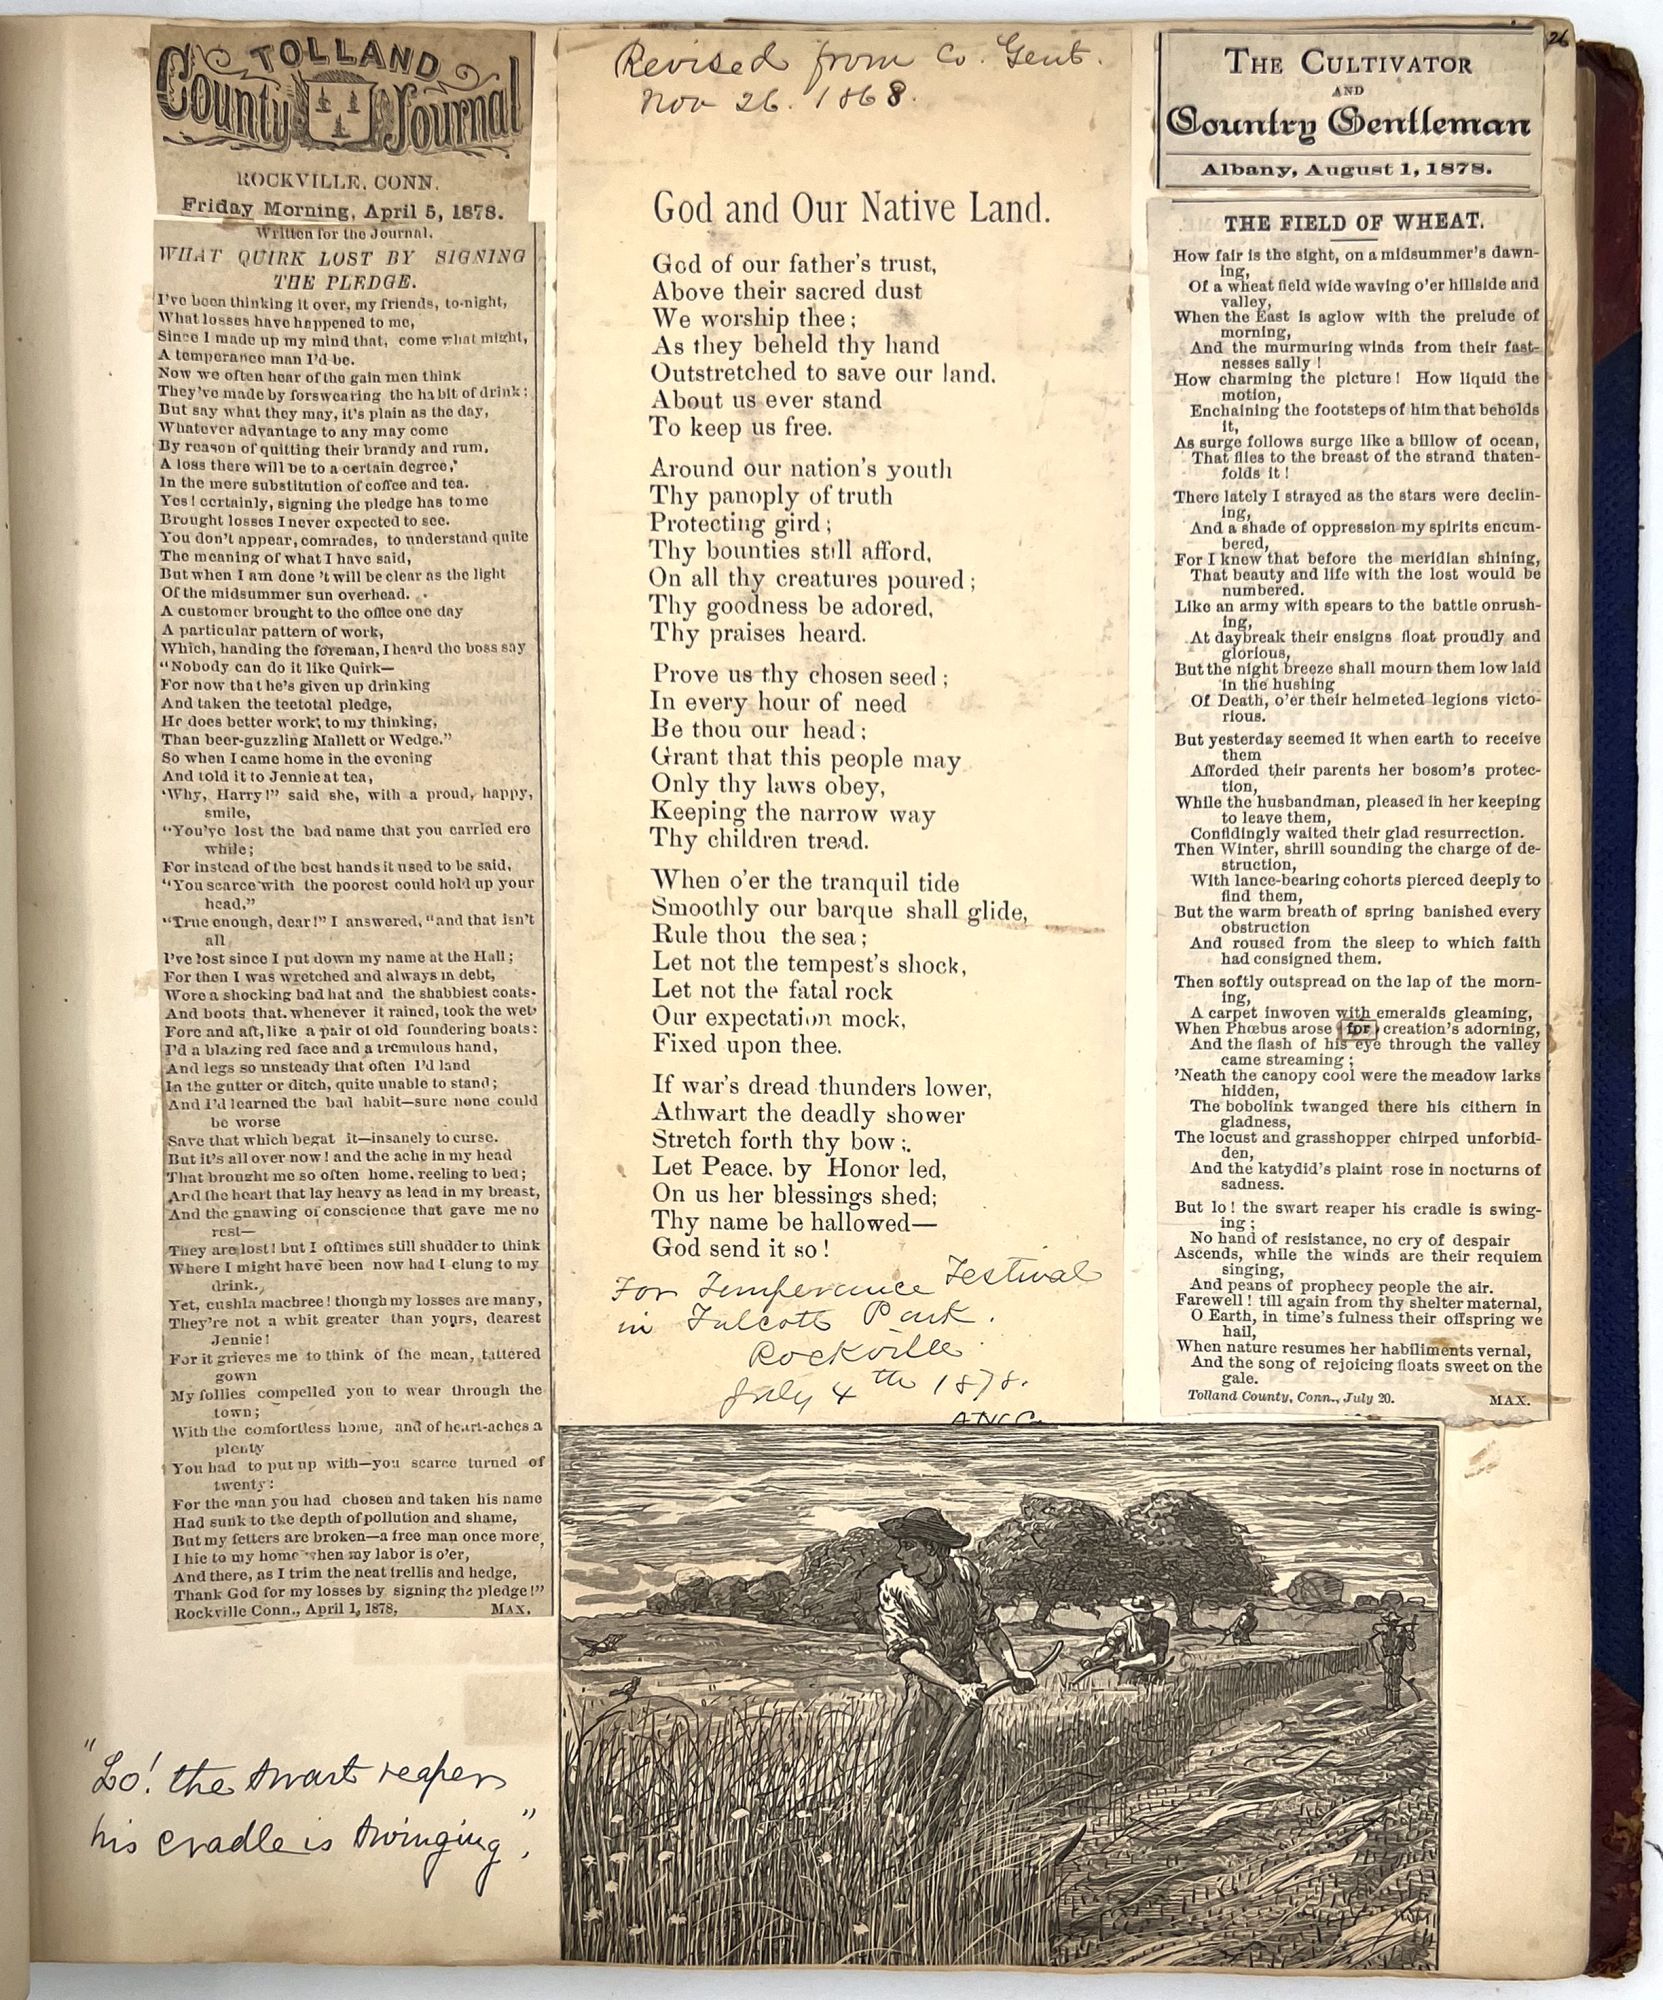 TOLLAND
County Journal
ROCKVILLE, CONN.
Friday Morning, April 5, 1878.
Written for the Journal.
WHAT QUIRK LOST BY SIGNING
THE PLEDGE.
I've been thinking it over, my friends, to-night,
What losses have happened to me,
Since I made up my mind that, come what might,
A temperance man I'd be.
Now we often hear of the gain men think
They've made by forswearing the habit of drink;
But say what they may, it's plain as the day,
Whatever advantage to any may come
By reason of quitting their brandy and rum,
A loss there will be to a certain degree,
In the mere substitution of coffee and tea.
Yes! certainly, signing the pledge has to me
Brought losses I never expected to see.
You don't appear, comrades, to understand quite
The meaning of what I have said,
But when I am done 't will be clear as the light
Of the midsummer sun overhead.
A customer brought to the office one day
A particular pattern of work,
Which, handing the foreman, I heard the boss say
"Nobody can do it like Quirk—
For now that he's given up drinking
And taken the teetotal pledge,
He does better work, to my thinking,
Than beer-guzzling Mallett or Wedge."
So when I came home in the evening
And told it to Jennie at tea,
'Why, Harry!" said she, with a proud, happy,
smile,
"You've lost the bad name that you carried ere
while;
For instead of the best hands it used to be said,
"You scarce with the poorest could hold up your
head,"
"True enough, dear!" I answered, "and that isn't
all
I've lost since I put down my name at the Hall;
For then I was wretched and always in debt,
Wore a shocking bad hat and the shabbiest coats-
And boots that, whenever it rained, took the wet,
Fore and aft, like a pair of old foundering boats:
I'd a blazing red face and a tremulous hand,
And legs so unsteady that often I'd land
In the gutter or ditch, quite unable to stand;
And I'd learned the bad habit—sure none could
be worse
Save that which begat it—insanely to curse.
But it's all over now! and the ache in my head
That brought me so often home, reeling to bed;
And the heart that lay heavy as lead in my breast,
And the gnawing of conscience that gave me no
rest—
They are lost! but I ofttimes still shudder to think
Where I might have been now had I clung to my
drink.
Yet, cushla machree! though my losses are many,
They're not a whit greater than yours, dearest
Jennie!
For it grieves me to think of the mean, tattered
gown
My follies compelled you to wear through the
town;
With the comfortless home, and of heart-aches a
plenty
You had to put up with—you scarce turned of
twenty:
For the man you had chosen and taken his name
Had sunk to the depth of pollution and shame,
But my fetters are broken—a free man once more,
I hie to my home when my labor is o'er,
And there, as I trim the neat trellis and hedge,
Thank God for my losses by signing the pledge!"
Rockville Conn., April 1, 1878, MAX,
"Lo! the swart reaper
his cradle is swinging",
Revised from Co. Gent.
Nov 26. 1868.
God and Our Native Land.
God of our father's trust,
Above their sacred dust
We worship thee;
As they beheld thy hand
Outstretched to save our land,
About us ever stand
To keep us free.
Around our nation's youth
Thy panoply of truth
Protecting gird;
Thy bounties still afford,
On all thy creatures poured;
Thy goodness be adored,
Thy praises heard.
Prove us thy chosen seed;
In every hour of need
Be thou our head;
Grant that this people may
Only thy laws obey,
Keeping the narrow way
Thy children tread.
When o'er the tranquil tide
Smoothly our barque shall glide,
Rule thou the sea;
Let not the tempest's shock,
Let not the fatal rock
Our expectation mock,
Fixed upon thee.
If war's dread thunders lower,
Athwart the deadly shower
Stretch forth thy bow;
Let Peace, by Honor led,
On us her blessings shed;
Thy name be hallowed—
God send it so!
For Temperance Festival
in Talcott Park.
Rockville
July 4th 1878.
26
THE CULTIVATOR
AND
Country Gentleman
Albany, August 1, 1878.
THE FIELD OF WHEAT.
How fair is the sight, on a midsummer's dawn-
ing,
Of a wheat field wide waving o'er hillside and
valley,
When the East is aglow with the prelude of
morning,
And the murmuring winds from their fast-
nesses sally!
How charming the picture! How liquid the
motion,
Enchaining the footsteps of him that beholds
it,
As surge follows surge like a billow of ocean,
That flies to the breast of the strand that en-
folds it!
There lately I strayed as the stars were declin-
ing,
And a shade of oppression my spirits encum-
bered,
For I knew that before the meridian shining,
That beauty and life with the lost would be
numbered.
Like an army with spears to the battle onrush-
ing,
At daybreak their ensigns float proudly and
glorious,
But the night breeze shall mourn them low laid
in the hushing
Of Death, o'er their helmeted legions victo-
rious.
But yesterday seemed it when earth to receive
them
Afforded their parents her bosom's protec-
tion,
While the husbandman, pleased in her keeping
to leave them,
Confidingly waited their glad resurrection.
Then Winter, shrill sounding the charge of de-
struction,
With lance-bearing cohorts pierced deeply to
find them,
But the warm breath of spring banished every
obstruction
And roused from the sleep to which faith
had consigned them.
Then softly outspread on the lap of the morn-
ing,
A carpet inwoven with emeralds gleaming,
When Phœbus arose for creation's adorning,
And the flash of his eye through the valley
came streaming;
'Neath the canopy cool were the meadow larks
hidden,
The bobolink twanged there his cithern in
gladness,
The locust and grasshopper chirped unforbid-
den,
And the katydid's plaint rose in nocturns of
sadness.
But lo! the swart reaper his cradle is swing-
ing;
No hand of resistance, no cry of despair
Ascends, while the winds are their requiem
singing,
And peans of prophecy people the air.
Farewell! till again from thy shelter maternal,
O Earth, in time's fulness their offspring we
hail,
When nature resumes her habiliments vernal,
And the song of rejoicing floats sweet on the
gale.
Tolland County, Conn., July 20. MAX.